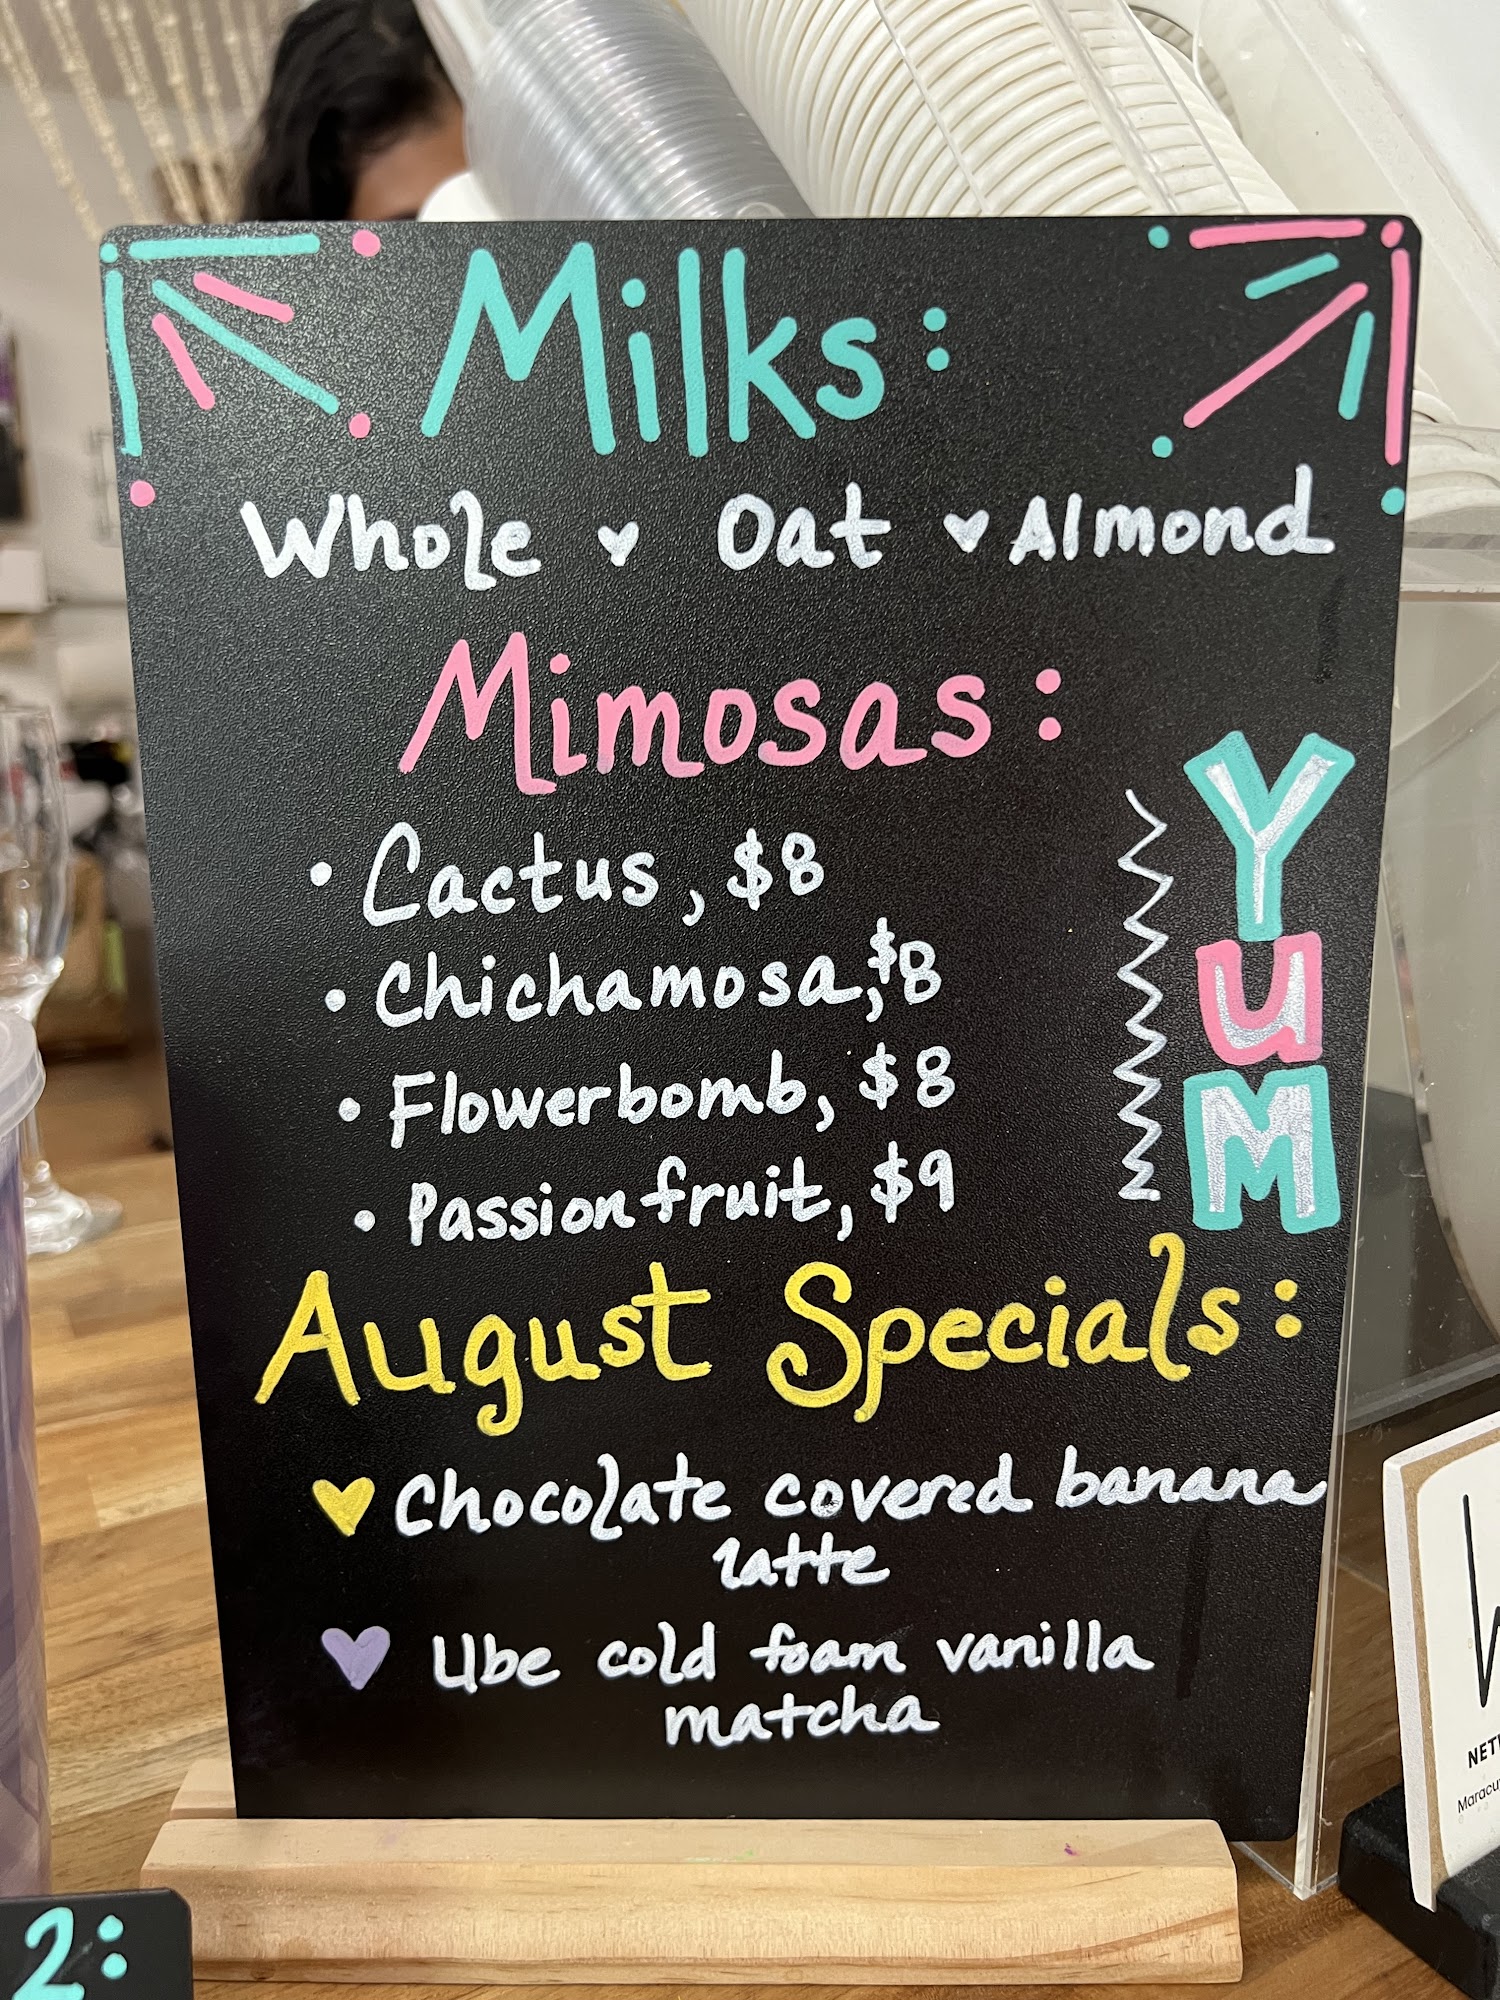 Milks:
Whole ♥ Oat ♥ Almond
Mimosas:
• Cactus, $8
• Chichamosa, $8
• Flowerbomb, $8
• Passionfruit, $9
YUM
August Specials:
♥ Chocolate covered banana
latte
♥ Ube cold foam vanilla
matcha
2:
NET
Maracu